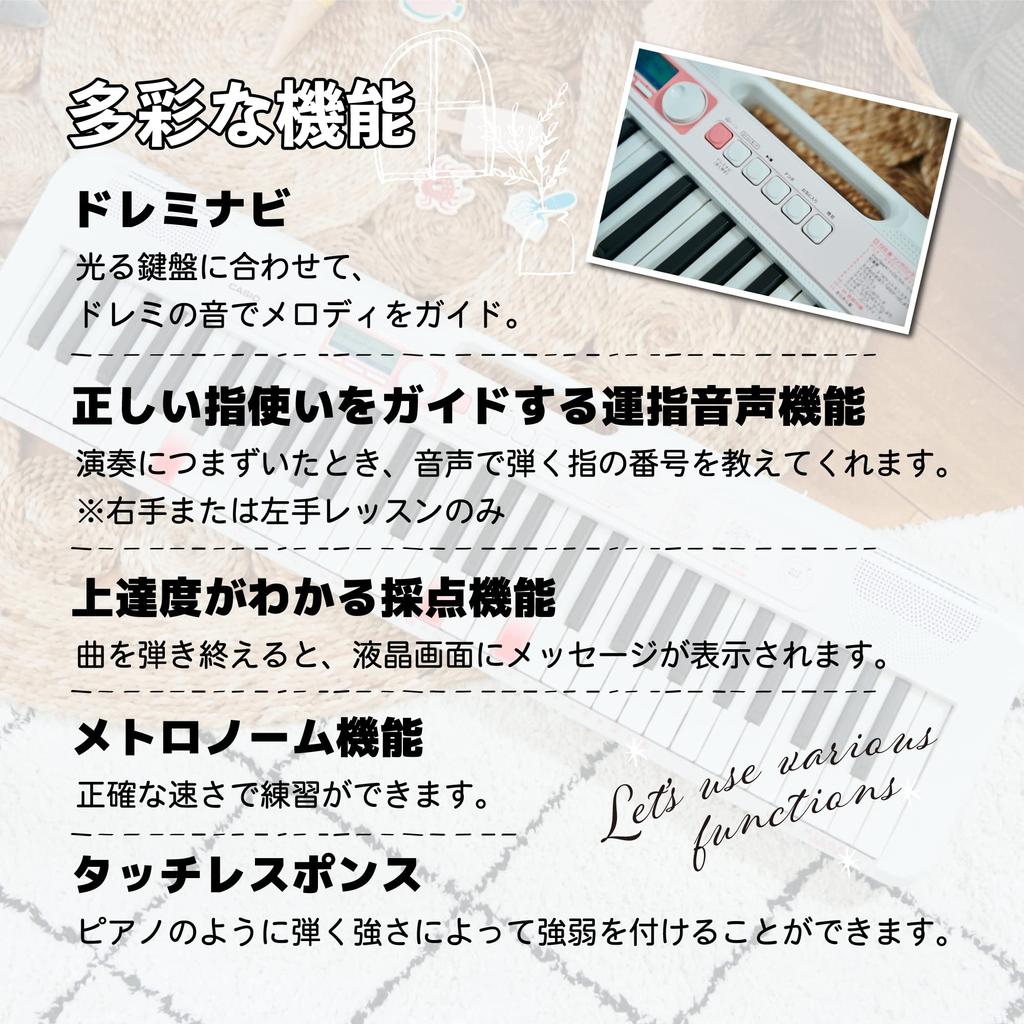 多彩な機能
ドレミナビ
光る鍵盤に合わせて、
ドレミの音でメロディをガイド。
正しい指使いをガイドする運指音声機能
演奏につまずいたとき、音声で弾く指の番号を教えてくれます。
※右手または左手レッスンのみ
上達度がわかる採点機能
曲を弾き終えると、液晶画面にメッセージが表示されます。
メトロノーム機能
正確な速さで練習ができます。
Let's use various
functions
タッチレスポンス
ピアノのように弾く強さによって強弱を付けることができます。
CASIO